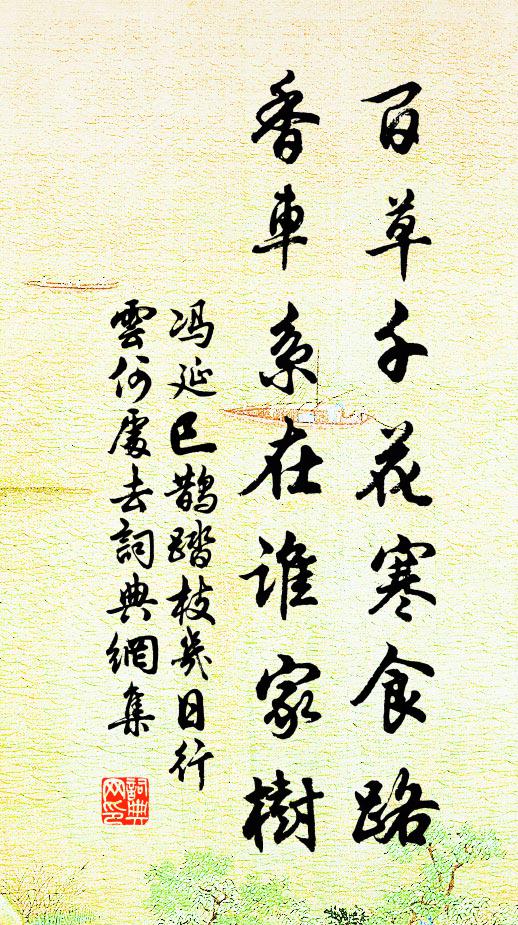 百草千花寒食路
香車系在誰家樹
冯延巳鹊踏枝幾日行
雲何處去詞典網集
詞典网印